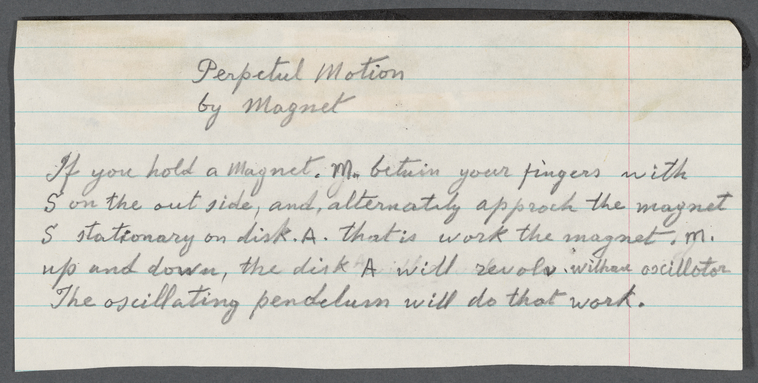 Perpetul Motion
by Magnet
If you hold a Magnet. M. betwin your fingers with
S on the out side, and, alternataly approch the magnet
S stationary on disk. A. that is work the magnet. M.
up and down, the disk A will revolv. oscillotor
The oscillating pendelum will do that work.